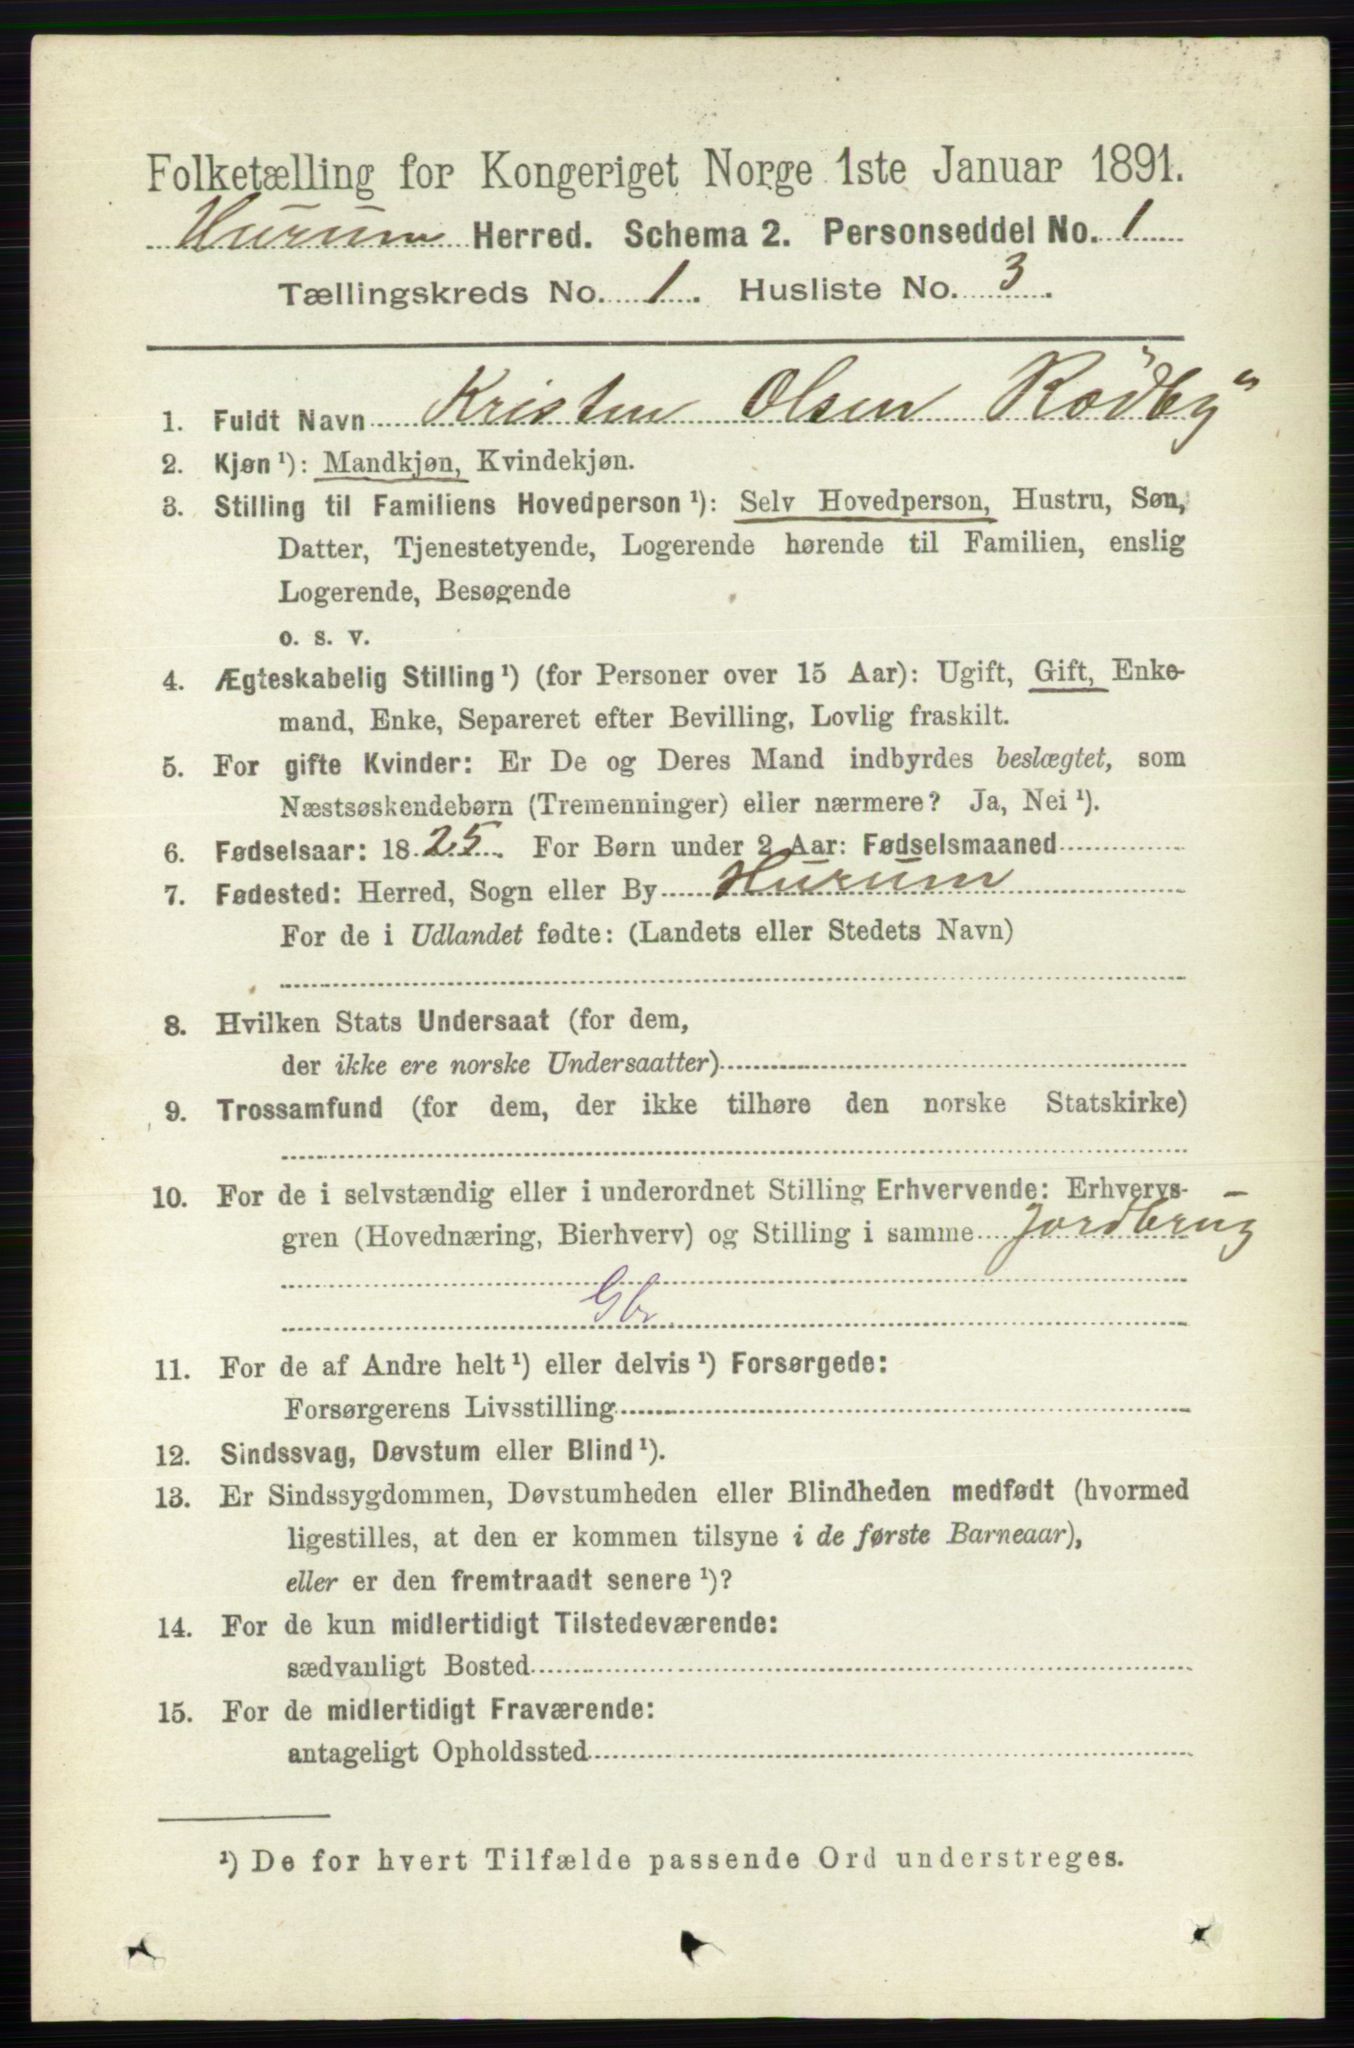 Folketælling for Kongeriget Norge 1ste Januar 1891.
Hurum Herred. Schema 2. Personseddel No. 1
Tællingskreds No. 1. Husliste No. 3.
1. Fuldt Navn Kristen Olsen Rödby
2. Kjøn ¹): Mandkjøn, Kvindekjøn.
3. Stilling til Familiens Hovedperson ¹): Selv Hovedperson, Hustru, Søn,
Datter, Tjenestetyende, Logerende hørende til Familien, enslig
Logerende, Besøgende
o. s. v.
4. Ægteskabelig Stilling ¹) (for Personer over 15 Aar): Ugift, Gift, Enke-
mand, Enke, Separeret efter Bevilling, Lovlig fraskilt.
5. For gifte Kvinder: Er De og Deres Mand indbyrdes beslægtet, som
Næstsøskendebørn (Tremenninger) eller nærmere? Ja, Nei ¹).
6. Fødselsaar: 1825. For Børn under 2 Aar: Fødselsmaaned
7. Fødested: Herred, Sogn eller By Hurum
For de i Udlandet fødte: (Landets eller Stedets Navn)
8. Hvilken Stats Undersaat (for dem,
der ikke ere norske Undersaatter)
9. Trossamfund (for dem, der ikke tilhøre den norske Statskirke)
10. For de i selvstændig eller i underordnet Stilling Erhvervende: Erhvervs-
gren (Hovednæring, Bierhverv) og Stilling i samme Jordbrug
Gbr
11. For de af Andre helt ¹) eller delvis ¹) Forsørgede:
Forsørgerens Livsstilling
12. Sindssvag, Døvstum eller Blind ¹).
13. Er Sindssygdommen, Døvstumheden eller Blindheden medfødt (hvormed
ligestilles, at den er kommen tilsyne i de første Barneaar),
eller er den fremtraadt senere ¹)?
14. For de kun midlertidigt Tilstedeværende:
sædvanligt Bosted
15. For de midlertidigt Fraværende:
antageligt Opholdssted
¹) De for hvert Tilfælde passende Ord understreges.